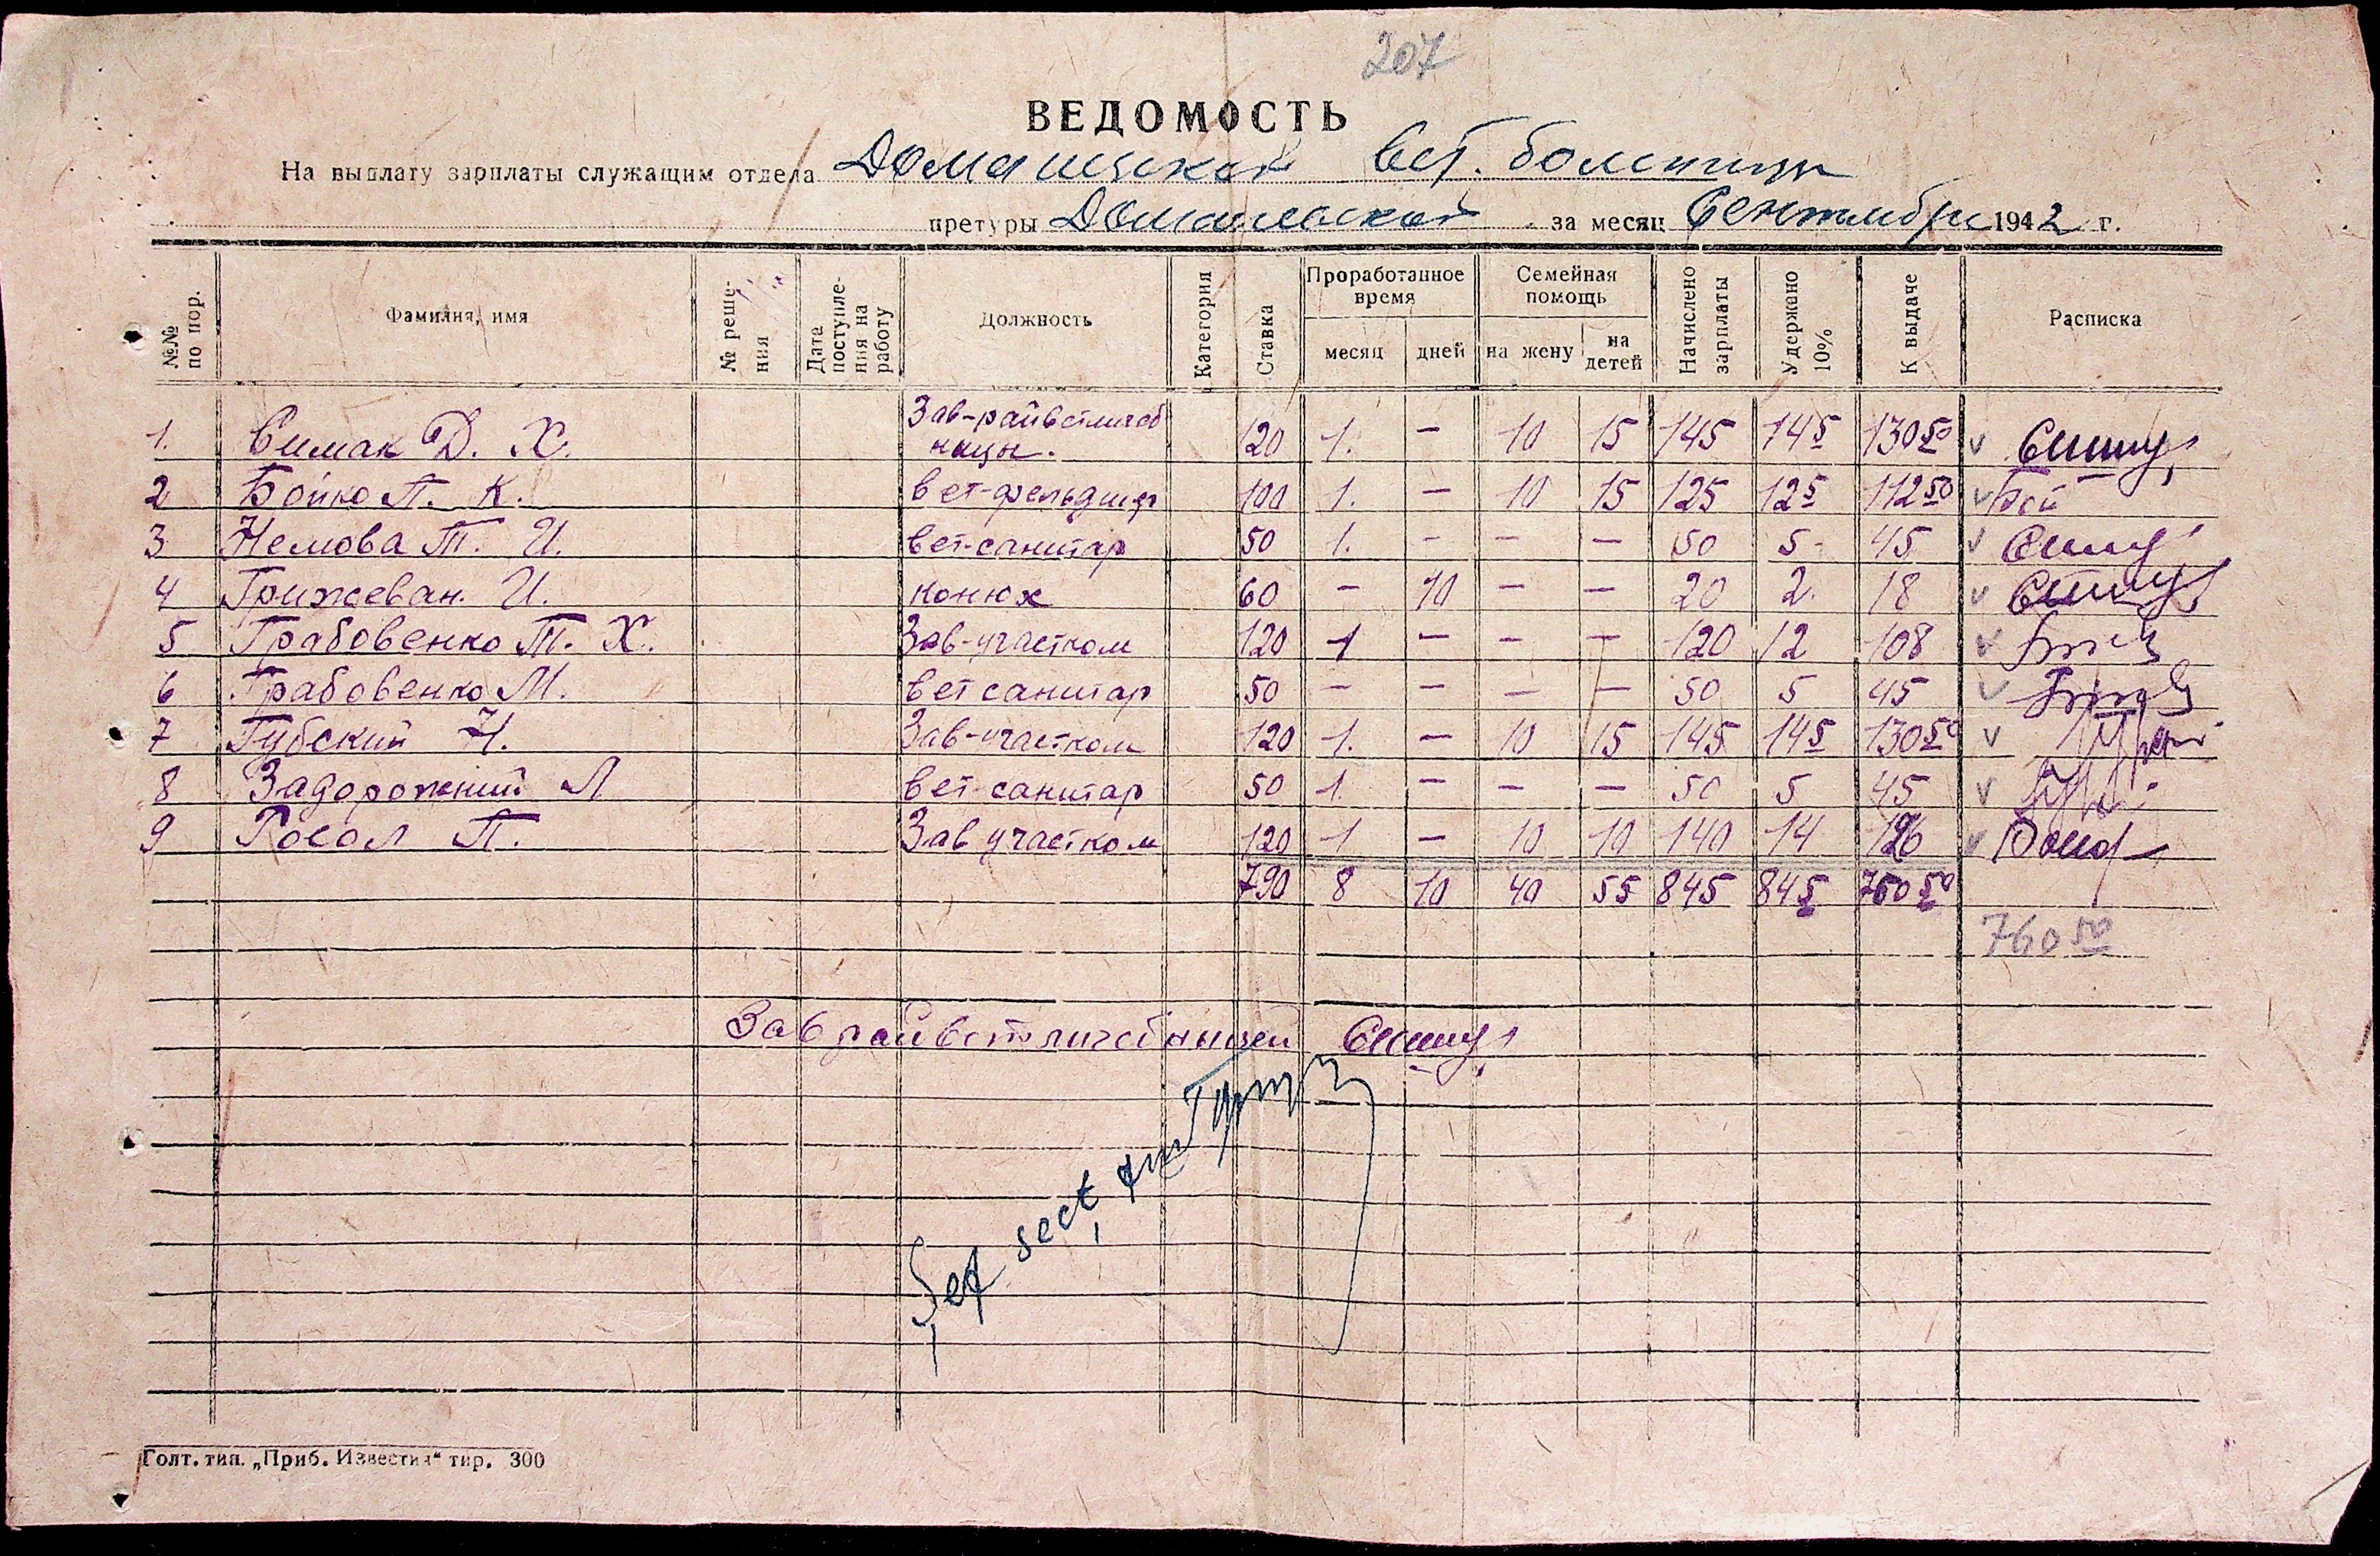 207
ВЕДОМОСТЬ
На выплату зарплаты служащим отдела Вет. больницы
претуры за месяц Сентябрь 1942 г.
№№ по пор. Фамилия, имя № решения Дата поступления на работу Должность Категория Ставка Проработанное время месяц дней Семейная помощь на жену на детей Начислено зарплаты Удержано 10% К выдаче Расписка
1. Симак Д. Х. Зав-райветлечебницы. 120 1. — 10 15 145 14 5 130 50
2 Бойко П. К. вет-фельдшер 100 1. — 10 15 125 12 5 112 50 Бой
3 Немова Т. И. вет-санитар 50 1. - — — 50 5- 45
4 Грижеван. И. конюх 60 — 10 — — 20 2. 18
5 Грабовенко Т. Х. Зав-участком 120 1 — — — 120 12 108
6 Грабовенко М. вет санитар 50 — — — — 50 5 45
7 Губский Н. Зав-участком 120 1. — 10 15 145 14 5 130 50
8 Задорожний Л вет-санитар 50 1. — — — 50 5 45
9 Росол П. Зав участком 120 1 — 10 10 140 14 126
790 8 10 40 55 845 84 5 760 50
760 50
Зав райветлечебницей
Şef sect,
Голт. тип. „Приб. Известия“ тир. 300